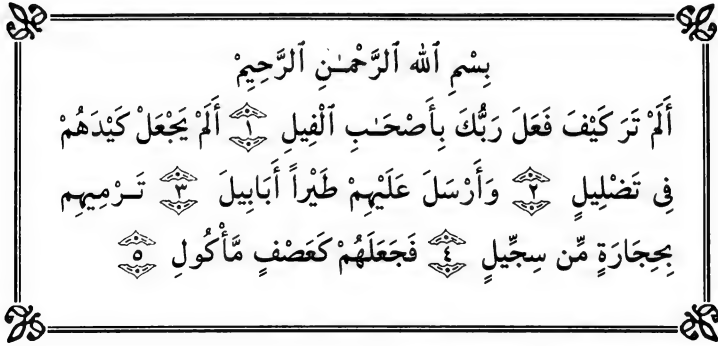 بِسْمِ ٱللَّهِ ٱلرَّحْمَـٰنِ ٱلرَّحِيمْ
أَلَمْ تَرَ كَيْفَ فَعَلَ رَبُّكَ بِأَصْحَـٰبِ ٱلْفِيلِ ١ أَلَمْ يَجْعَلْ كَيْدَهُمْ
فِى تَضْلِيلٍ ٢ وَأَرْسَلَ عَلَيْهِمْ طَيْراً أَبَابِيلَ ٣ تَـرْمِيهِم
بِحِجَارَةٍ مِّن سِجِّيلٍ ٤ فَجَعَلَهُمْ كَعَصْفٍ مَّأْكُولِ ٥